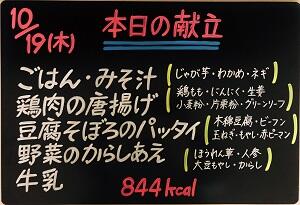 10/19(木) 本日の献立
ごはん・みそ汁 (じゃが芋・わかめ・ネギ)
鶏肉の唐揚げ (鶏もも・にんにく・生姜
小麦粉・片栗粉・グリーンリーフ)
豆腐そぼろのパッタイ (木綿豆腐・ビーフン
玉ねぎ・もやし・赤ピーマン)
野菜のからしあえ (ほうれん草・人参
大豆もやし・からし)
牛乳 844kcal